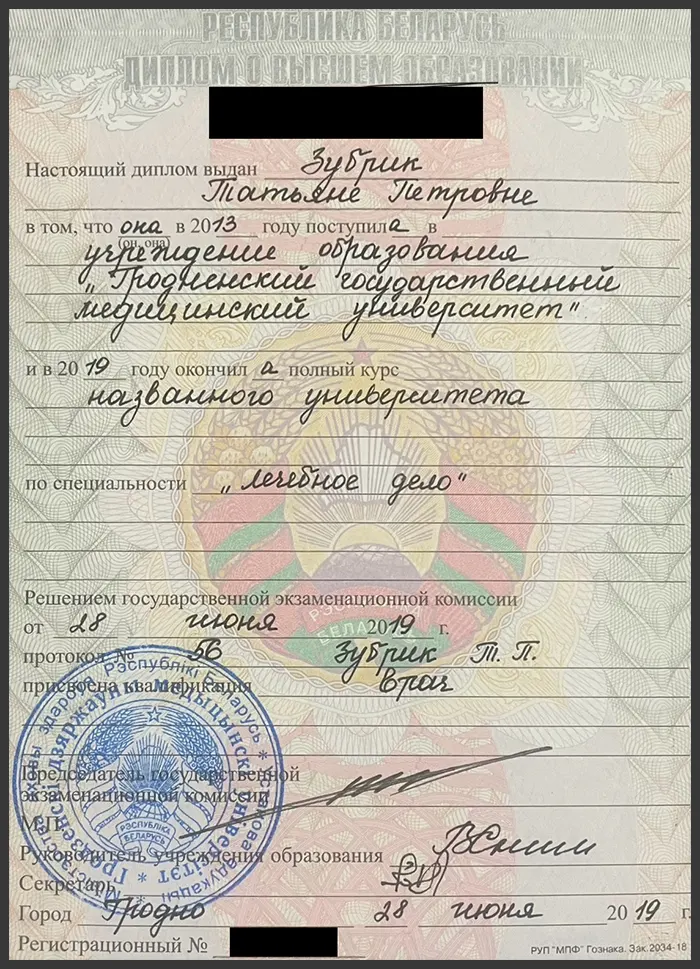 РЕСПУБЛИКА БЕЛАРУСЬ
ДИПЛОМ О ВЫСШЕМ ОБРАЗОВАНИИ
Настоящий диплом выдан Зубрик
Татьяне Петровне
в том, что она в 2013 году поступила в
(он, она)
учреждение образования
„Гродненский государственный
медицинский университет"
и в 2019 году окончил а полный курс
названного университета
по специальности „лечебное дело"
Решением государственной экзаменационной комиссии
от 28 июня 2019 г.
протокол № 5б Зубрик Т. П.
присвоена квалификация врач
Председатель государственной
экзаменационной комиссии
М.П.
Руководитель учреждения образования
Секретарь
Город Гродно 28 июня 2019 г.
Регистрационный №
РУП "МПФ" Гознака. Зак. 2034-18
РЭСПУБЛІКА
БЕЛАРУСЬ